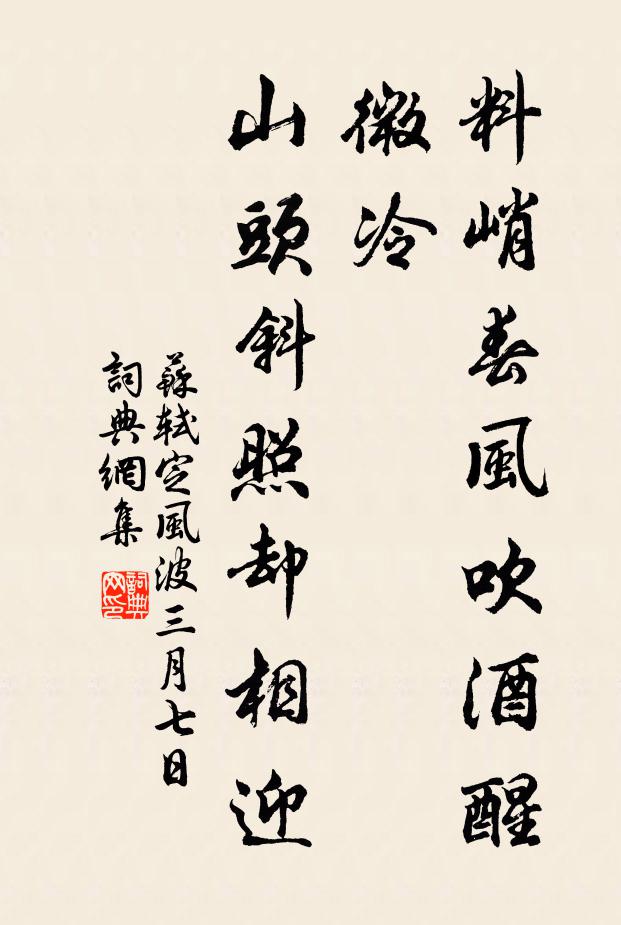 料峭春風吹酒醒
微冷
山頭斜照却相迎
蘇軾定風波三月七日
詞典網集
詞典网印